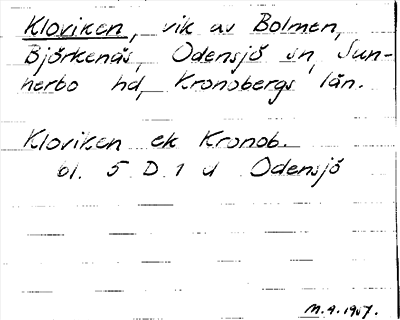 Kloviken, vik av Bolmen,
Björkenäs, Odensjö sn, Sun-
nerbo hd, Kronobergs län.
Kloviken ek Kronob.
bl. 5 D 1 d Odensjö
M.A. 1967.